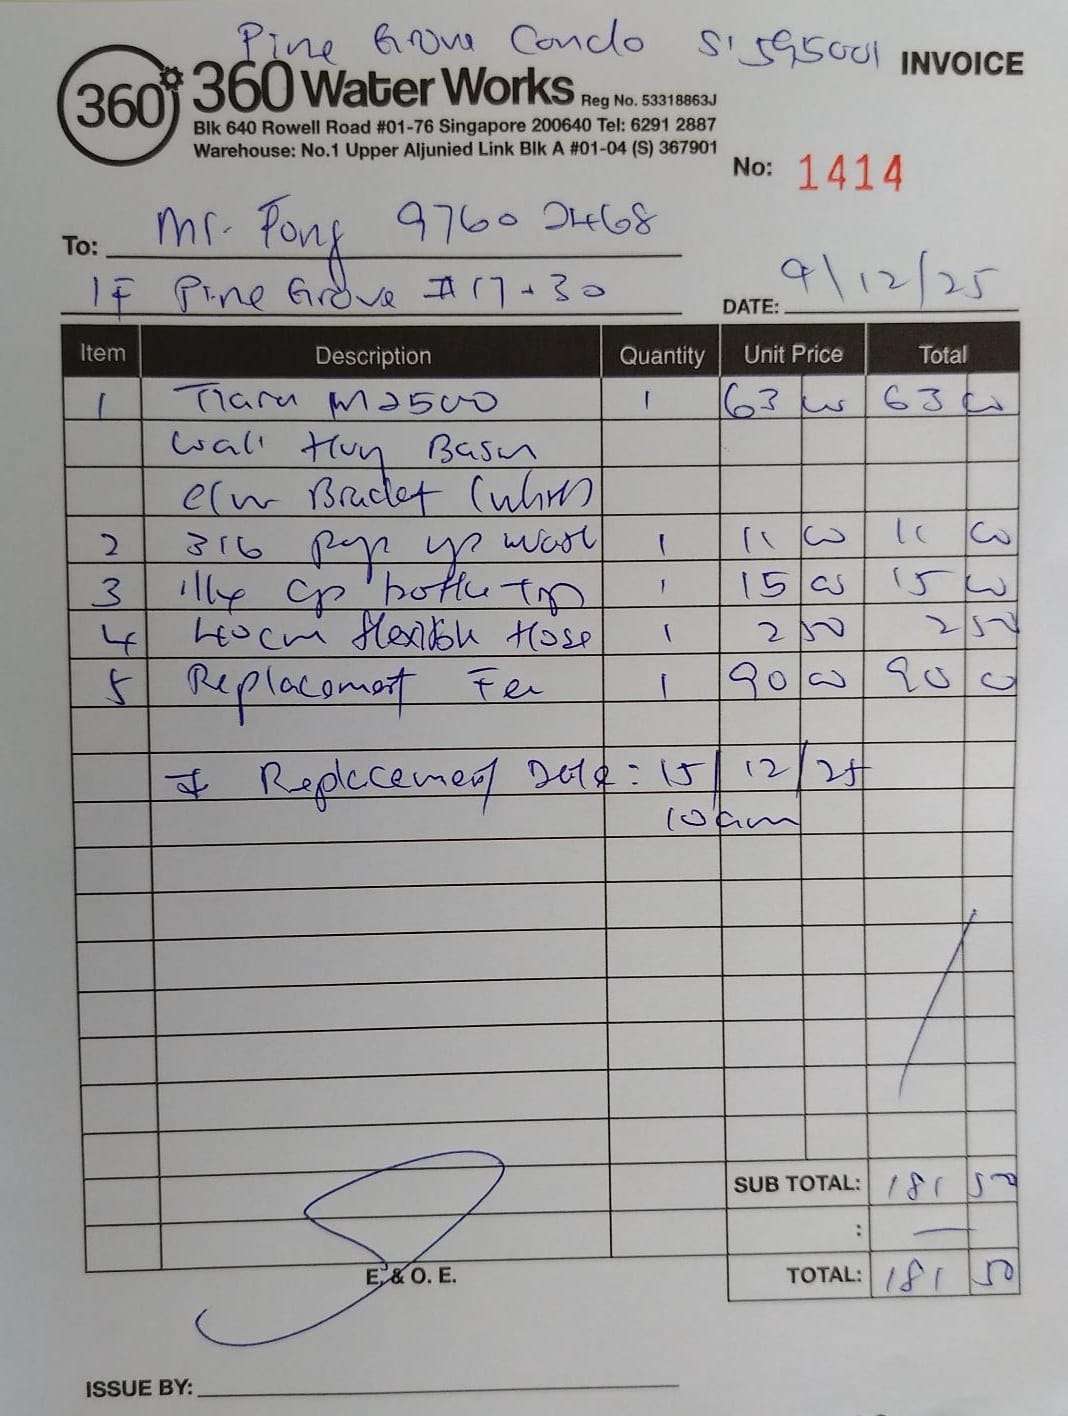 Pine Grove Condo S'595001
INVOICE
360°
360 Water Works Reg No. 53318863J
Blk 640 Rowell Road #01-76 Singapore 200640 Tel: 6291 2887
Warehouse: No.1 Upper Aljunied Link Blk A #01-04 (S) 367901
No: 1414
To: Mr. Fong 9760 2468
1F Pine Grove #17-30
DATE: 9/12/25
Item Description Quantity Unit Price Total
1 Tiara M2500 1 63 00 63 00
Wall Hung Basin
c/w Bracket (White)
2 316 Pop up waste 1 11 00 11 00
3 1 1/4 cp bottle trap 1 15 00 15 00
4 40cm flexible Hose 1 2 50 2 50
5 Replacement Fee 1 90 00 90 00
* Replacement Date: 15/12/25
10am
SUB TOTAL: 181 50
: —
TOTAL: 181 50
E. & O. E.
ISSUE BY: